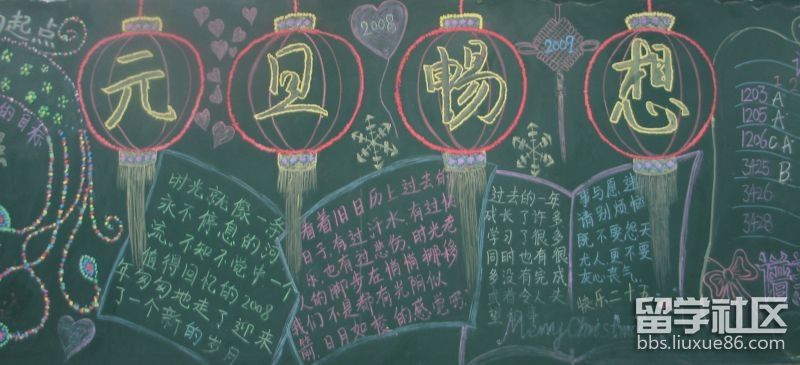 起点
的目标
元旦暢想
2008
2009
时光就像一条
永不停息的河
流,不知不觉中一个
值得回忆的2008
年匆匆地走了迎来
了一个新的岁月
看着旧日历上过去的
日子,有过汗水,有过快
乐,也有过悲伤。时光老
人的脚步在悄悄挪移
我们不是都有光阴似
箭,日月如梭的感觉吧
过去的一年
成长了许多
学习了很多
同时也有很
多没有完成
或有令人失
望
事与愿违
请别烦恼
既不要怨天
尤人更不要
灰心丧气。
快乐二十五
Merry Christmas
1203 A
1205 A
1206 CA
3425 B
3426
3428
留学社区
bbs.liuxue86.com